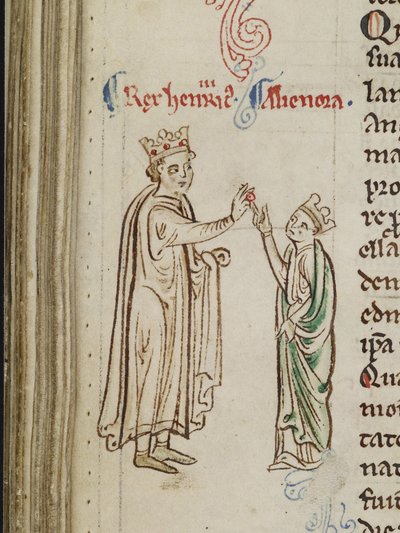 Rex henric̄ iii. Alienora.
Q
sua
lan
An
ma
pro
re p
ella
den
edm
ip̄a
Qua
mo
tate
nat
fuit
die